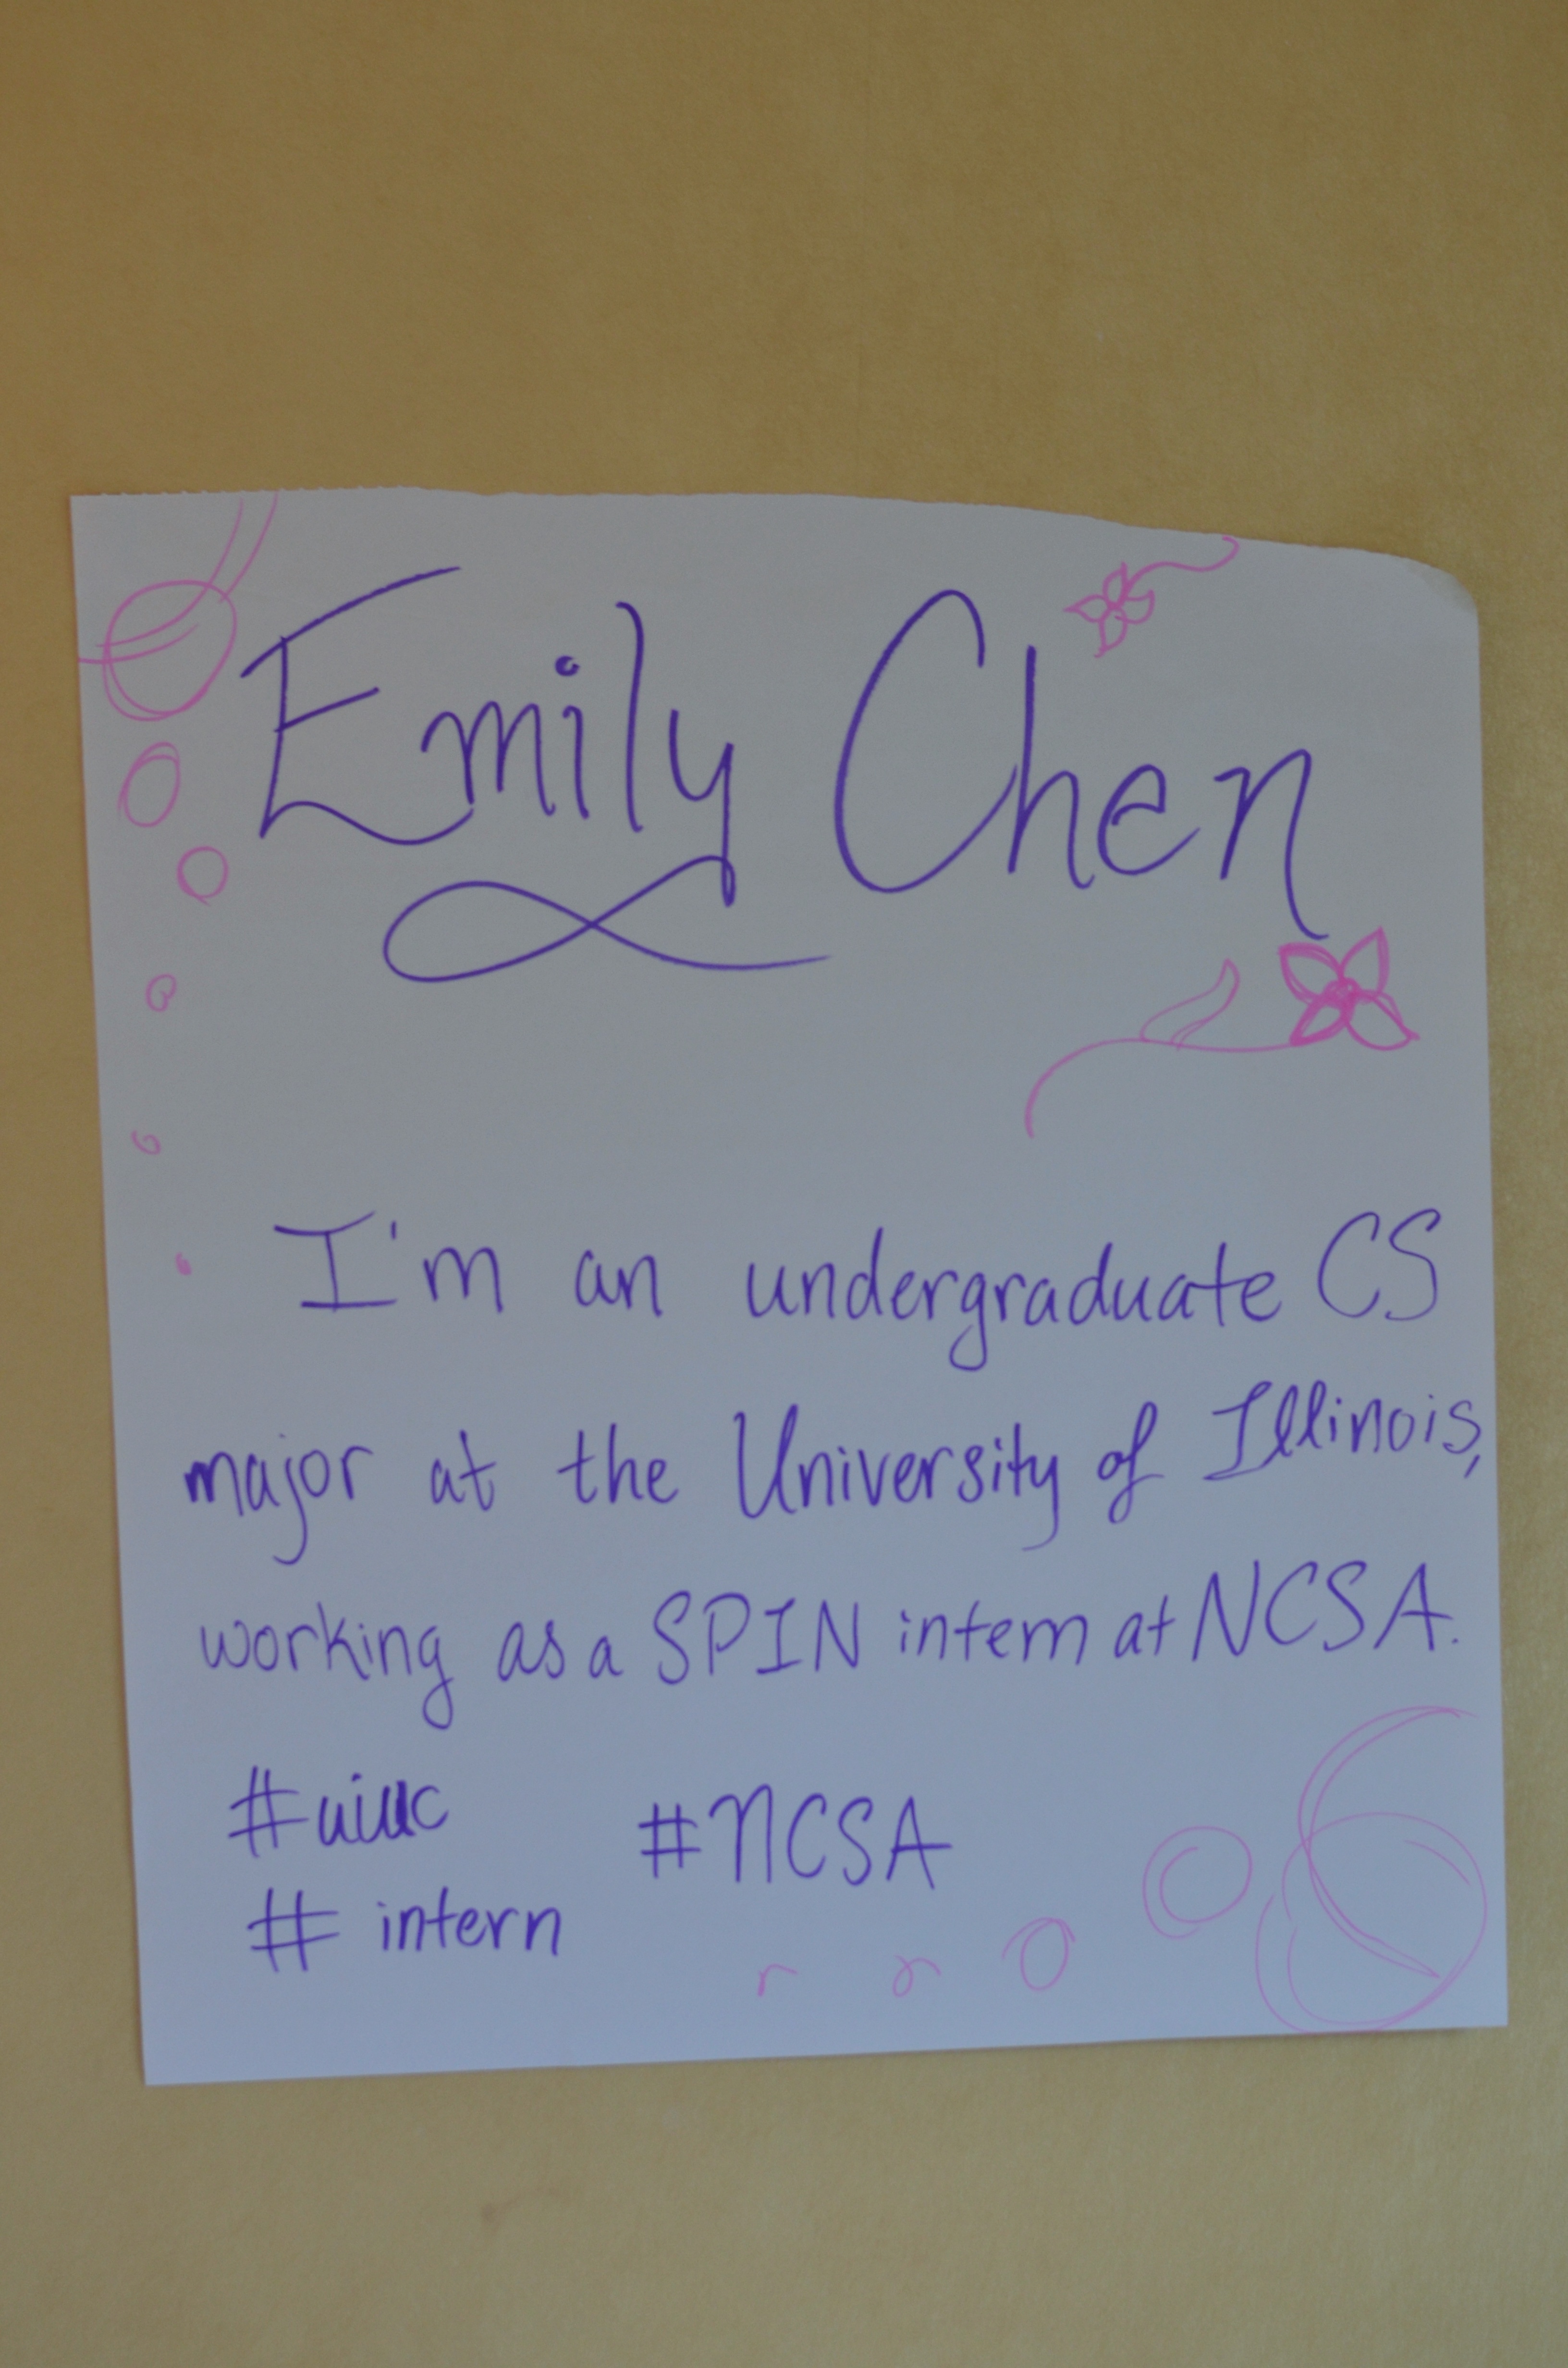 Emily Chen
I'm an undergraduate CS
major at the University of Illinois,
working as a SPIN intern at NCSA.
#uiuc #NCSA
# intern